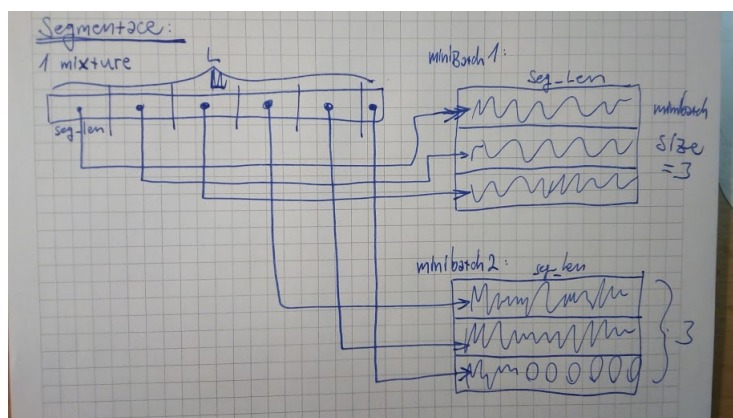 Segmentace:
1 mixture
L
seg-len
miniBatch 1:
seg-len
minibatch
size
=3
minibatch 2:
seg-len
3
000000